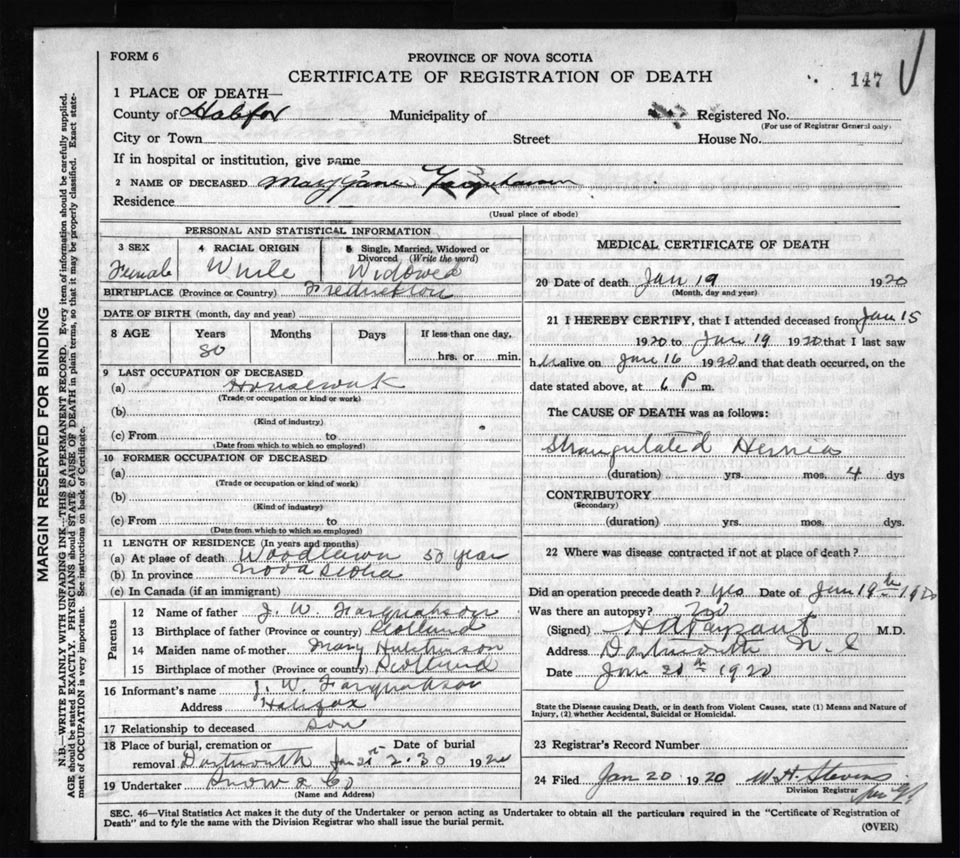 FORM 6
PROVINCE OF NOVA SCOTIA
CERTIFICATE OF REGISTRATION OF DEATH
147
1 PLACE OF DEATH—
County of Halifax Municipality of Registered No.
(For use of Registrar General only)
City or Town Street House No.
If in hospital or institution, give name
2 NAME OF DECEASED Mary Jane Farquharson
Residence
(Usual place of abode)
PERSONAL AND STATISTICAL INFORMATION
3 SEX 4 RACIAL ORIGIN 5 Single, Married, Widowed or Divorced (Write the word)
Female White Widowed
BIRTHPLACE (Province or Country) Fredericton
DATE OF BIRTH (month, day and year)
8 AGE Years Months Days If less than one day,
80 hrs. or min.
9 LAST OCCUPATION OF DECEASED
(a) Housework
(Trade or occupation or kind or work)
(b)
(Kind of industry)
(c) From to
(Date from which to which so employed)
10 FORMER OCCUPATION OF DECEASED
(a)
(Trade or occupation or kind of work)
(b)
(Kind of industry)
(c) From to
(Date from which to which so employed)
11 LENGTH OF RESIDENCE (In years and months)
(a) At place of death Woodlawn 50 year
(b) In province Nova Scotia
(c) In Canada (if an immigrant)
Parents
12 Name of father J. W. Farquharson
13 Birthplace of father (Province or country) Scotland
14 Maiden name of mother Mary Hutchinson
15 Birthplace of mother (Province or country) Scotland
16 Informant's name J. W. Farquharson
Address Halifax
17 Relationship to deceased Son
18 Place of burial, cremation or removal Dartmouth Date of burial Jan 21st 2.30 1920
19 Undertaker Snow & Co
(Name and Address)
MEDICAL CERTIFICATE OF DEATH
20 Date of death Jan 19 1920
(Month, day and year)
21 I HEREBY CERTIFY, that I attended deceased from Jan 15
1920 to Jan 19 1920 that I last saw
her alive on Jan 16 1920 and that death occurred, on the
date stated above, at 6 P m.
The CAUSE OF DEATH was as follows:
Strangulated Hernia
(duration) yrs. mos. 4 dys
CONTRIBUTORY
(Secondary)
(duration) yrs. mos. dys.
22 Where was disease contracted if not at place of death?
Did an operation precede death? Yes Date of Jan 19th 1920
Was there an autopsy? no
(Signed) H A Payzant M.D.
Address Dartmouth N.S
Date Jan 20th 1920
State the Disease causing Death, or in death from Violent Causes, state (1) Means and Nature of
Injury, (2) whether Accidental, Suicidal or Homicidal.
23 Registrar's Record Number
24 Filed Jan 20 1920 W. H. Stevens
Division Registrar
SEC. 46—Vital Statistics Act makes it the duty of the Undertaker or person acting as Undertaker to obtain all the particulars required in the "Certificate of Registration of
Death" and to fyle the same with the Division Registrar who shall issue the burial permit.
(OVER)
MARGIN RESERVED FOR BINDING
N.B.—WRITE PLAINLY WITH UNFADING INK—THIS IS A PERMANENT RECORD. Every item of information should be carefully supplied.
AGE should be stated EXACTLY. PHYSICIANS should STATE CAUSE OF DEATH in plain terms, so that it may be properly classified. Exact state-
ment of OCCUPATION is very important. See instructions on back of Certificate.